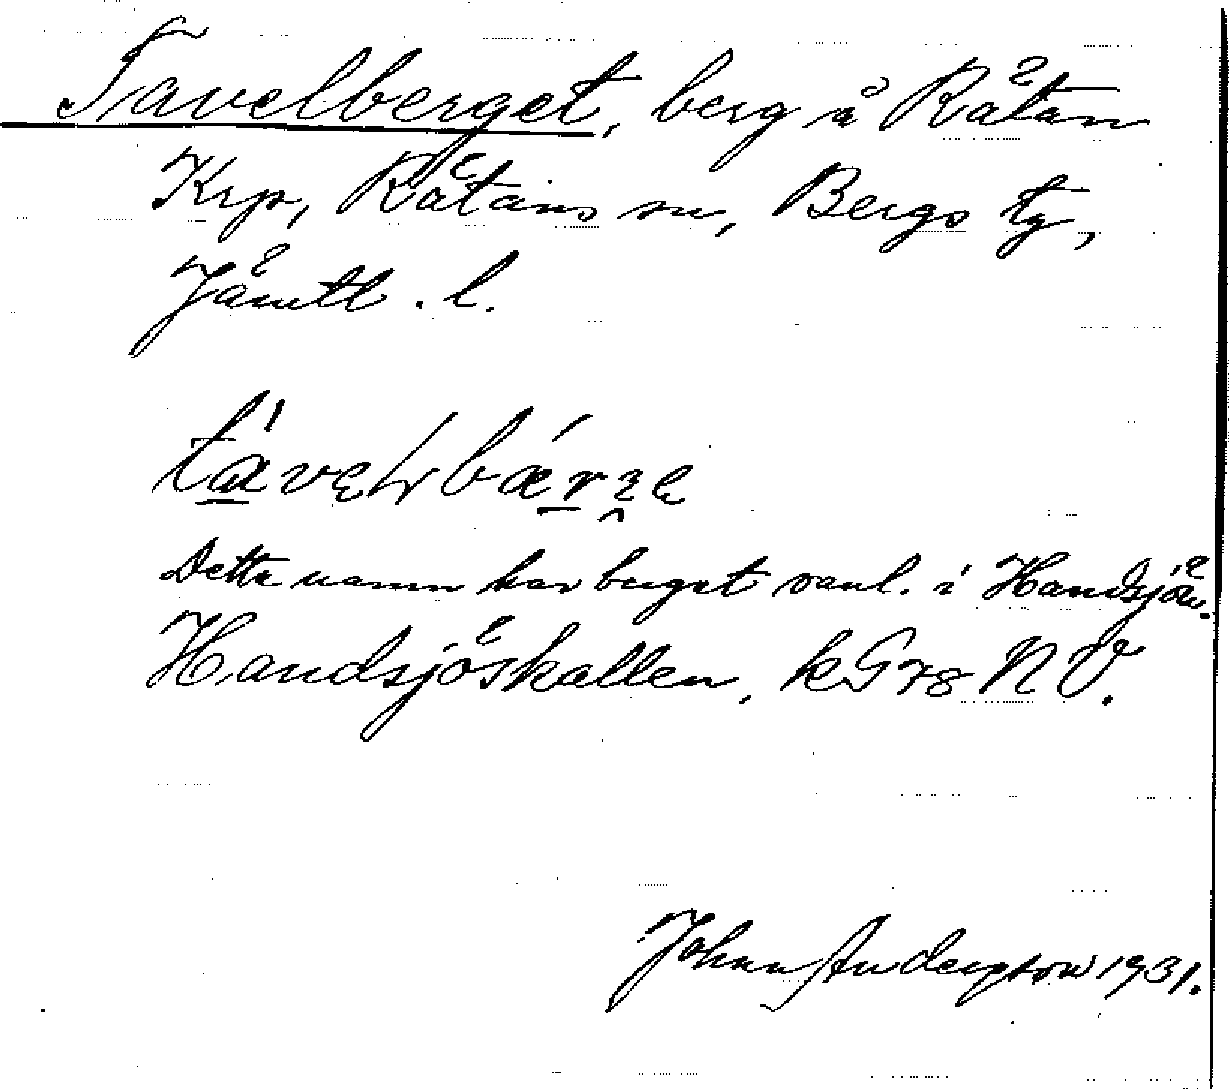 Tavelberget, berg å Rätan
Krp, Rätans sn, Bergs tg,
Jämtl. l.
Detta namn har buget vanl. i Handsjön.
Handsjöskallen, kG 78 NV.
Johan Anderson 1931.